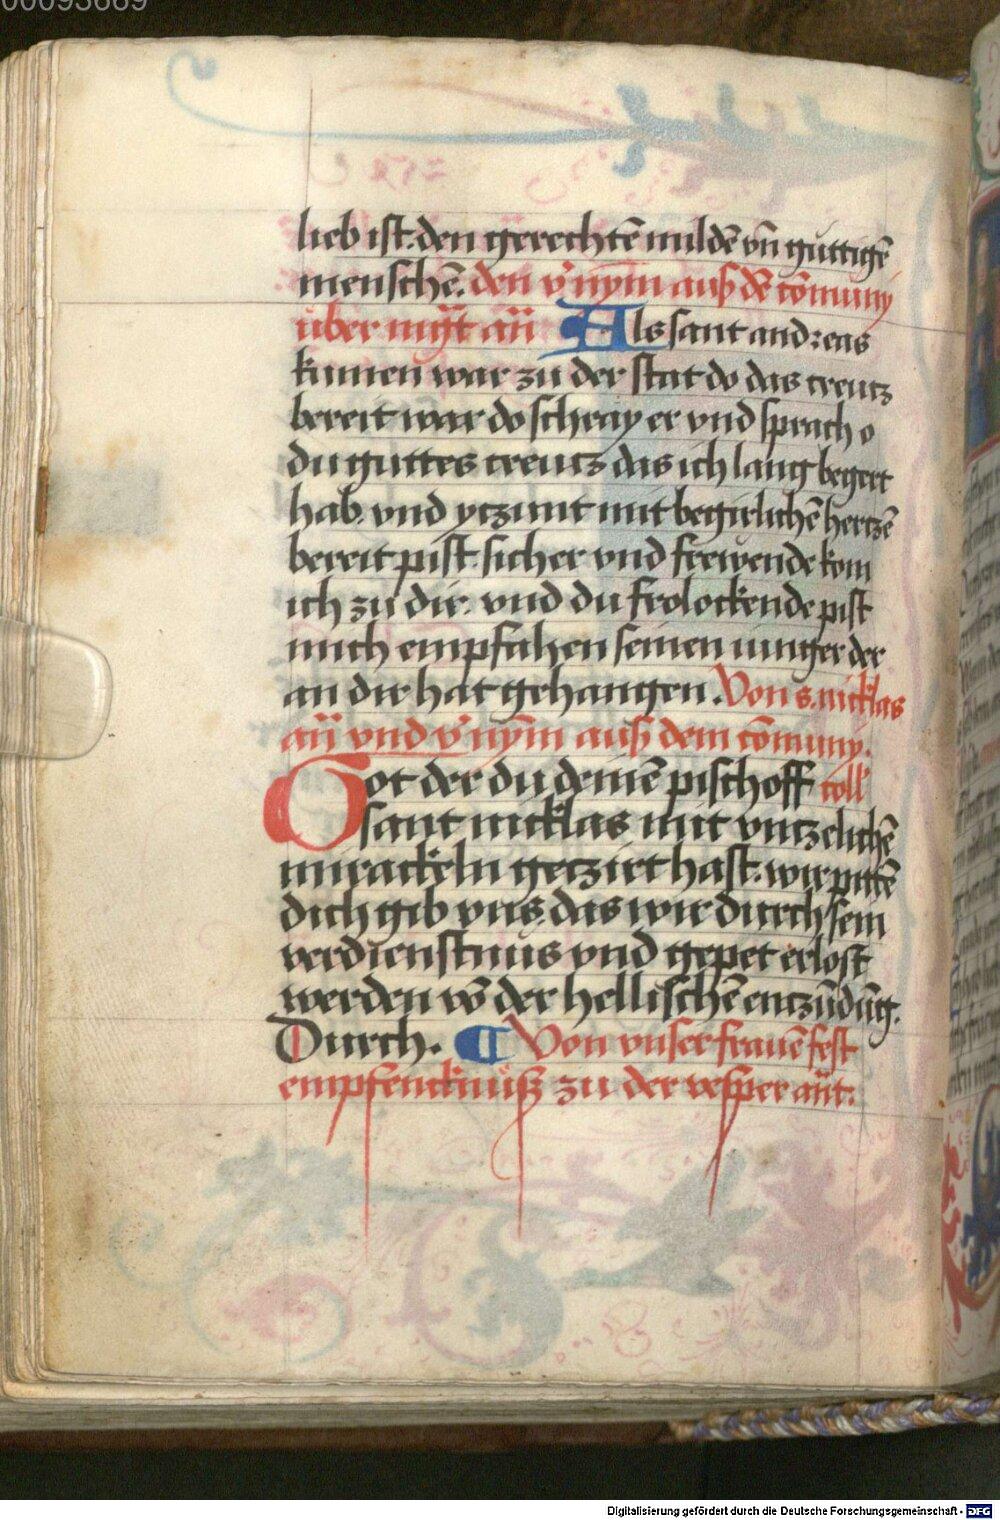 00093669
lieb ist. den gerechtē mildē vn̄ guttigē
menschē. den v̄ nym auß dē cōmuny
über mgt añ Als sant andreas
kumen war zu der stat do das creutz
bereit war do schray er vnd sprach o
du guttes creutz das ich lang begert
hab. vnd yczunt mit begirlichē hertzē
bereit pist. sicher vnd frewende kom
ich zu dir. vnd du frolockende pist
mich empfahen seinen iunger der
an dir hat gehangen. Von s. nicklas
añ vnd v̄ nym auß dem cōmuny.
Got der du deinē pischoff coll
sant nicklas mit vnczelichē
mirackeln geczirt hast. wir pittē
dich gib vns. das wir durch sein
verdienstnus vnd gepet erlost
werden vō der hellischē enczūdūg.
Durch. Von vnser frauē fest
empfencknüß zu der vesper añt.
Digitalisierung gefördert durch die Deutsche Forschungsgemeinschaft - DFG